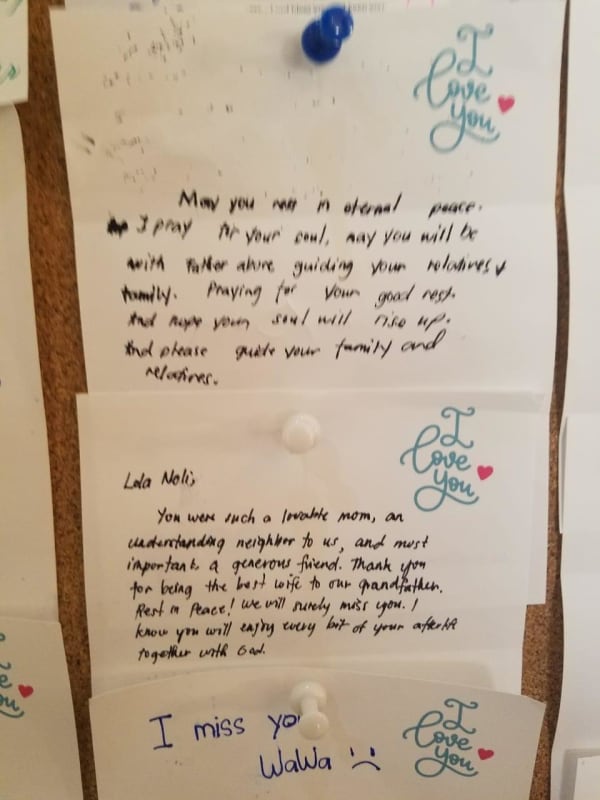 I
love
you
May you rest in eternal peace.
I pray for your soul, may you will be
with Father above guiding your relatives &
family. Praying for your good rest.
And hope your soul will rise up.
And please guide your family and
relatives.
I
love
you
Lola Noli,
You were such a lovable mom, an
understanding neighbor to us, and most
important, a generous friend. Thank you
for being the best wife to our grandfather.
Rest in Peace! We will surely miss you. I
know you will enjoy every bit of your afterlife
together with God.
I
love
you
I miss you
WaWa :(